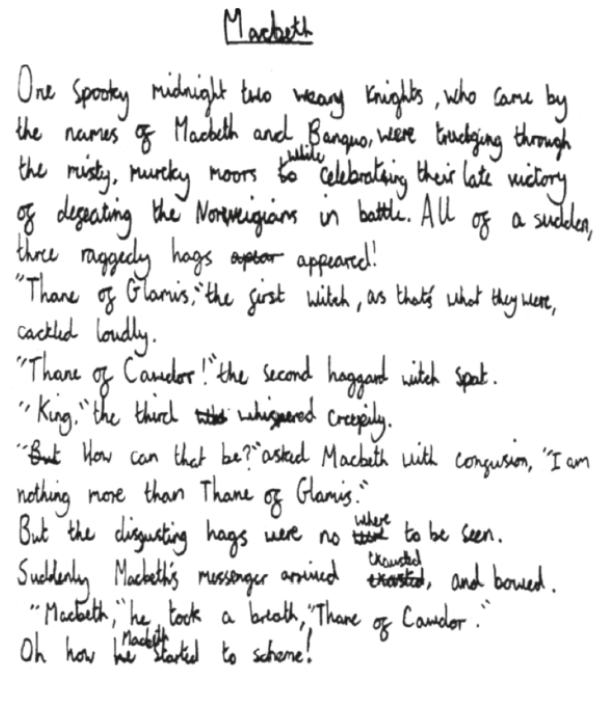 Macbeth
One spooky midnight two weary knights, who came by
the names of Macbeth and Banquo, were trudging through
the misty, murcky moors to while celebrating their late victory
of defeating the Norweigians in battle. All of a sudden,
three raggedy hags apear appeared!
"Thane of Glamis," the first witch, as that's what they were,
cackled loudly.
"Thane of Cawdor!" the second haggard witch spat.
"King," the third whispered creepily.
"But How can that be?" asked Macbeth with confusion, "I am
nothing more than Thane of Glamis."
But the disgusting hags were no where to be seen.
Suddenly Macbeth's messenger arrived exausted, and bowed.
"Macbeth," he took a breath, "Thane of Cawdor."
Oh how he Macbeth started to scheme!